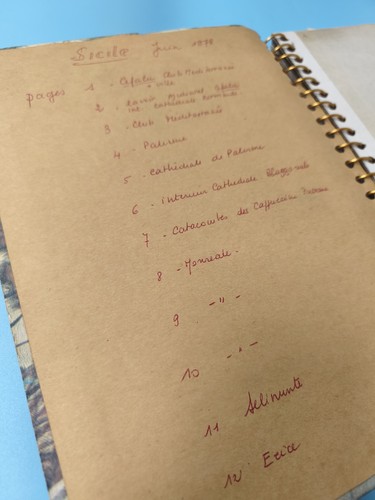 Sicile Juin 1978
pages 1 - Cefalu Club Mediterranée
+ ville
2 - Lavoir médieval Cefalu
int. cathédrale
3 - Club Mediterranée
4 - Palerme
5 - Cathédrale de Palerme
6 - Interieur Cathédrale
7 - Catacombes des Cappucins Palerme
8 - Monreale -
9 - " -
10 - " -
11 Selinunte
12 Erice